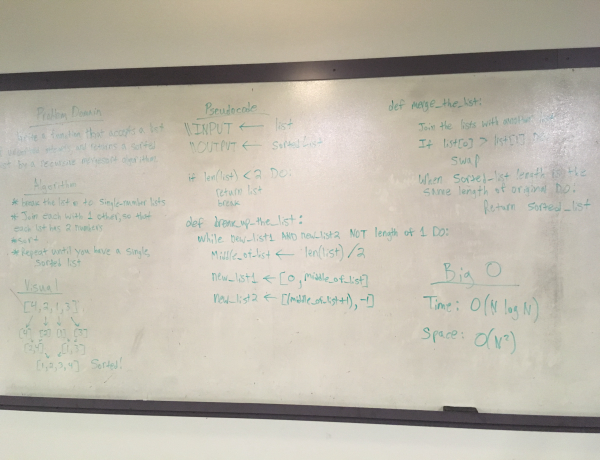 Problem Domain
Writing a function that accepts a list
of
integers and returns a sorted
list
a recursive mergesort algorithm
Algorithm
* break the list in to single-number lists
* Join each with 1 other, so that
each list has 2 numbers
* sort
* Repeat until you have a single,
sorted list
Visual
[4, 2, 1, 3]
[4] [2] [1] [3]
[2,4] [1,3]
[1,2,3,4] Sorted!
Pseudocode
\\INPUT ← list
\\OUTPUT ← Sorted list
if len(list) < 2 DO:
return list
break
def break_up_the_list:
while new_list1 AND new_list2 NOT length of 1 DO:
Middle_of_list ← len(list)/2
new_list1 ← [0, middle_of_list]
new_list2 ← [(middle_of_list+1), -1]
def merge_the_list:
Join the lists with another list
If list[0] > list[1] DO:
swap
When Sorted_list length is the
same length of original DO:
Return sorted_list
Big O
Time: O(N log N)
Space: O(N²)